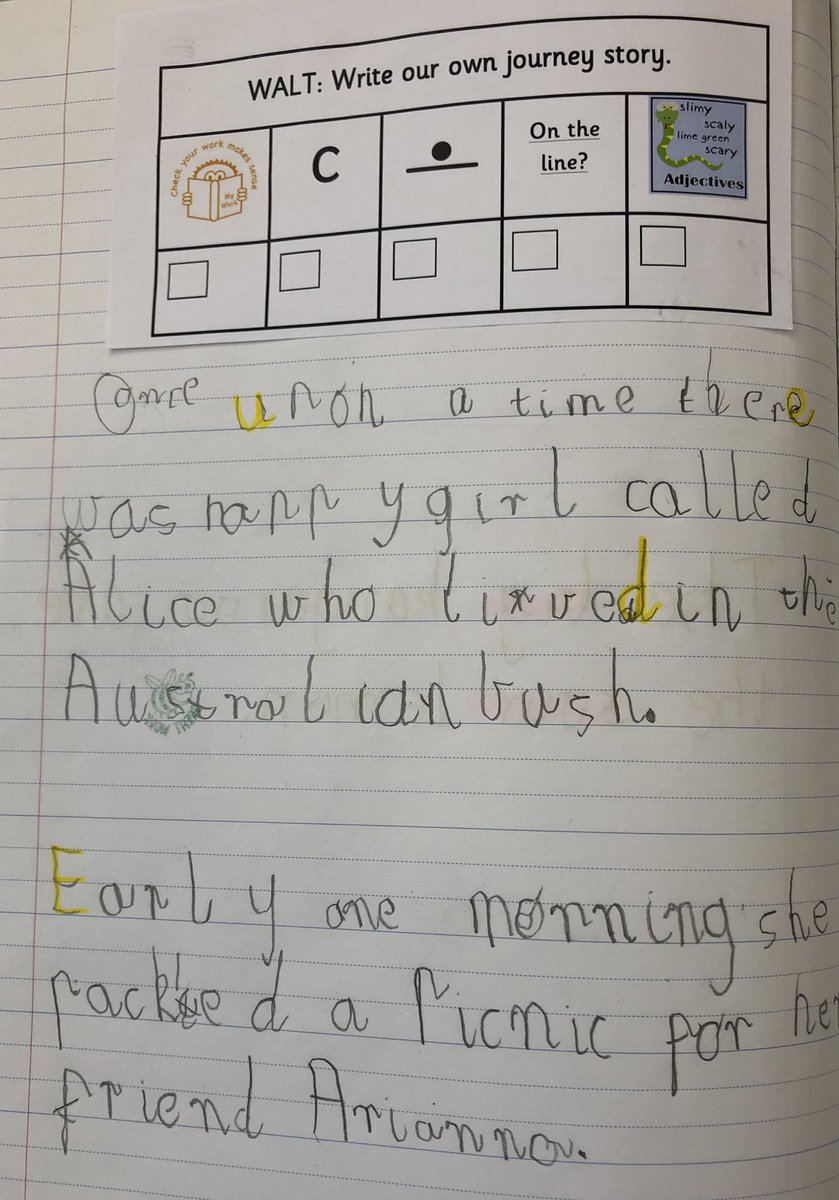 WALT: Write our own journey story.
Check your work makes sense
My Work
C
On the line?
slimy
scaly
lime green
scary
Adjectives
Once upon a time there
was happy girl called
Alice who lived in the
Australian bush.
Early one morning she
packed a picnic for her
friend Arianna.